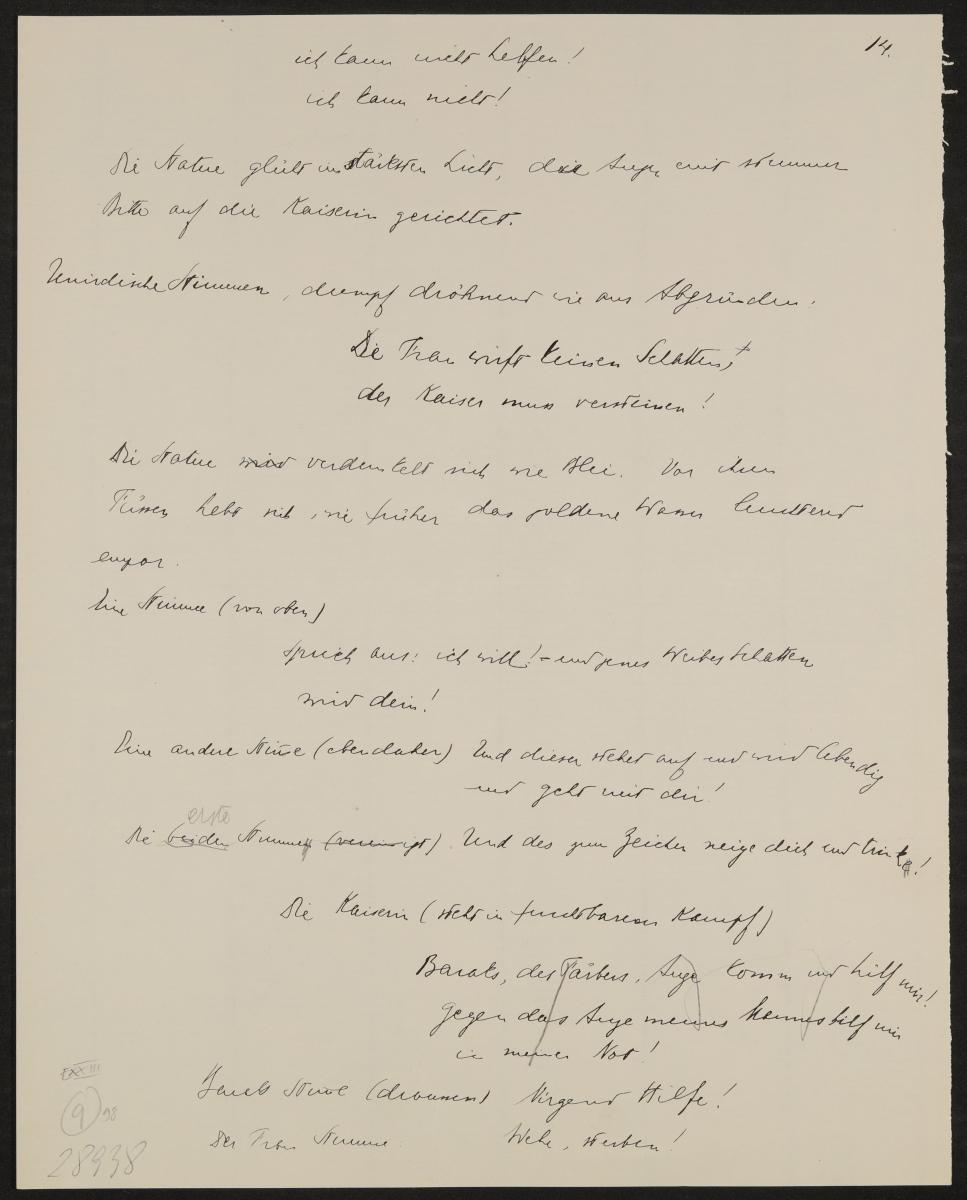 14.
ich kann nicht helfen!
ich kann nicht!
Die Statue glüht im stärksten Licht, die Augen mit stummer
Bitte auf die Kaiserin gerichtet.
Unirdische Stimmen, dumpf dröhnend wie aus Abgründen.
Die Frau wirft keinen Schatten,
der Kaiser muss versteinen!
Die Statue wird verdunkelt sich wie Blei. Vor ihren
Füssen hebt sich, wie früher das goldene Wasser leuchtend
empor.
Eine Stimme (von oben)
Sprich aus: ich will! – und jenes Weibes Schatten
wird dein!
Eine andere Stim̄e (ebendaher) Und dieser stehet auf und wird lebendig
und geht mit dir!
erste
Die beiden Stimmen (vereinigt) Und des zum Zeichen neige dich und trink!
Die Kaiserin (steht in furchtbarem Kampf)
Baraks, des Färbers, Auge komm und hilf mir!
gegen das Auge meines Mannes hilf mir
in meiner Not!
Baraks Stim̄e (draussen) Nirgend Hilfe!
Der Frau Stimme Wehe, sterben!
9
98
28938